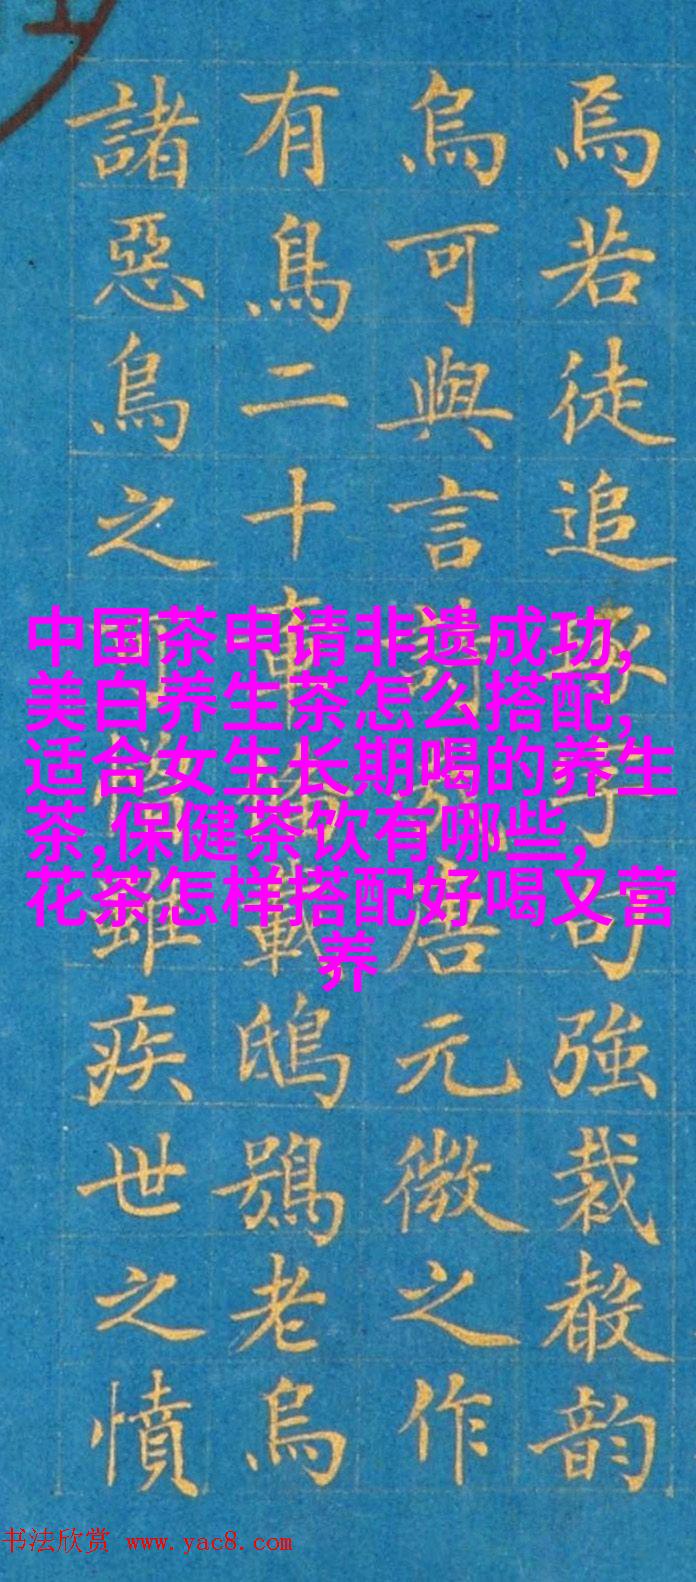 焉若徒追琢字句強裁韵
烏可與言詩唐元微之作
有鳥二十章載鴟鴞老烏
諸惡鳥之雖疾世之憤
中国茶申请非遗成功,
美白养生茶怎么搭配,
适合女生长期喝的养生
茶,保健茶饮有哪些,
花茶怎样搭配好喝又营
养
书法欣赏 www.yac8.com